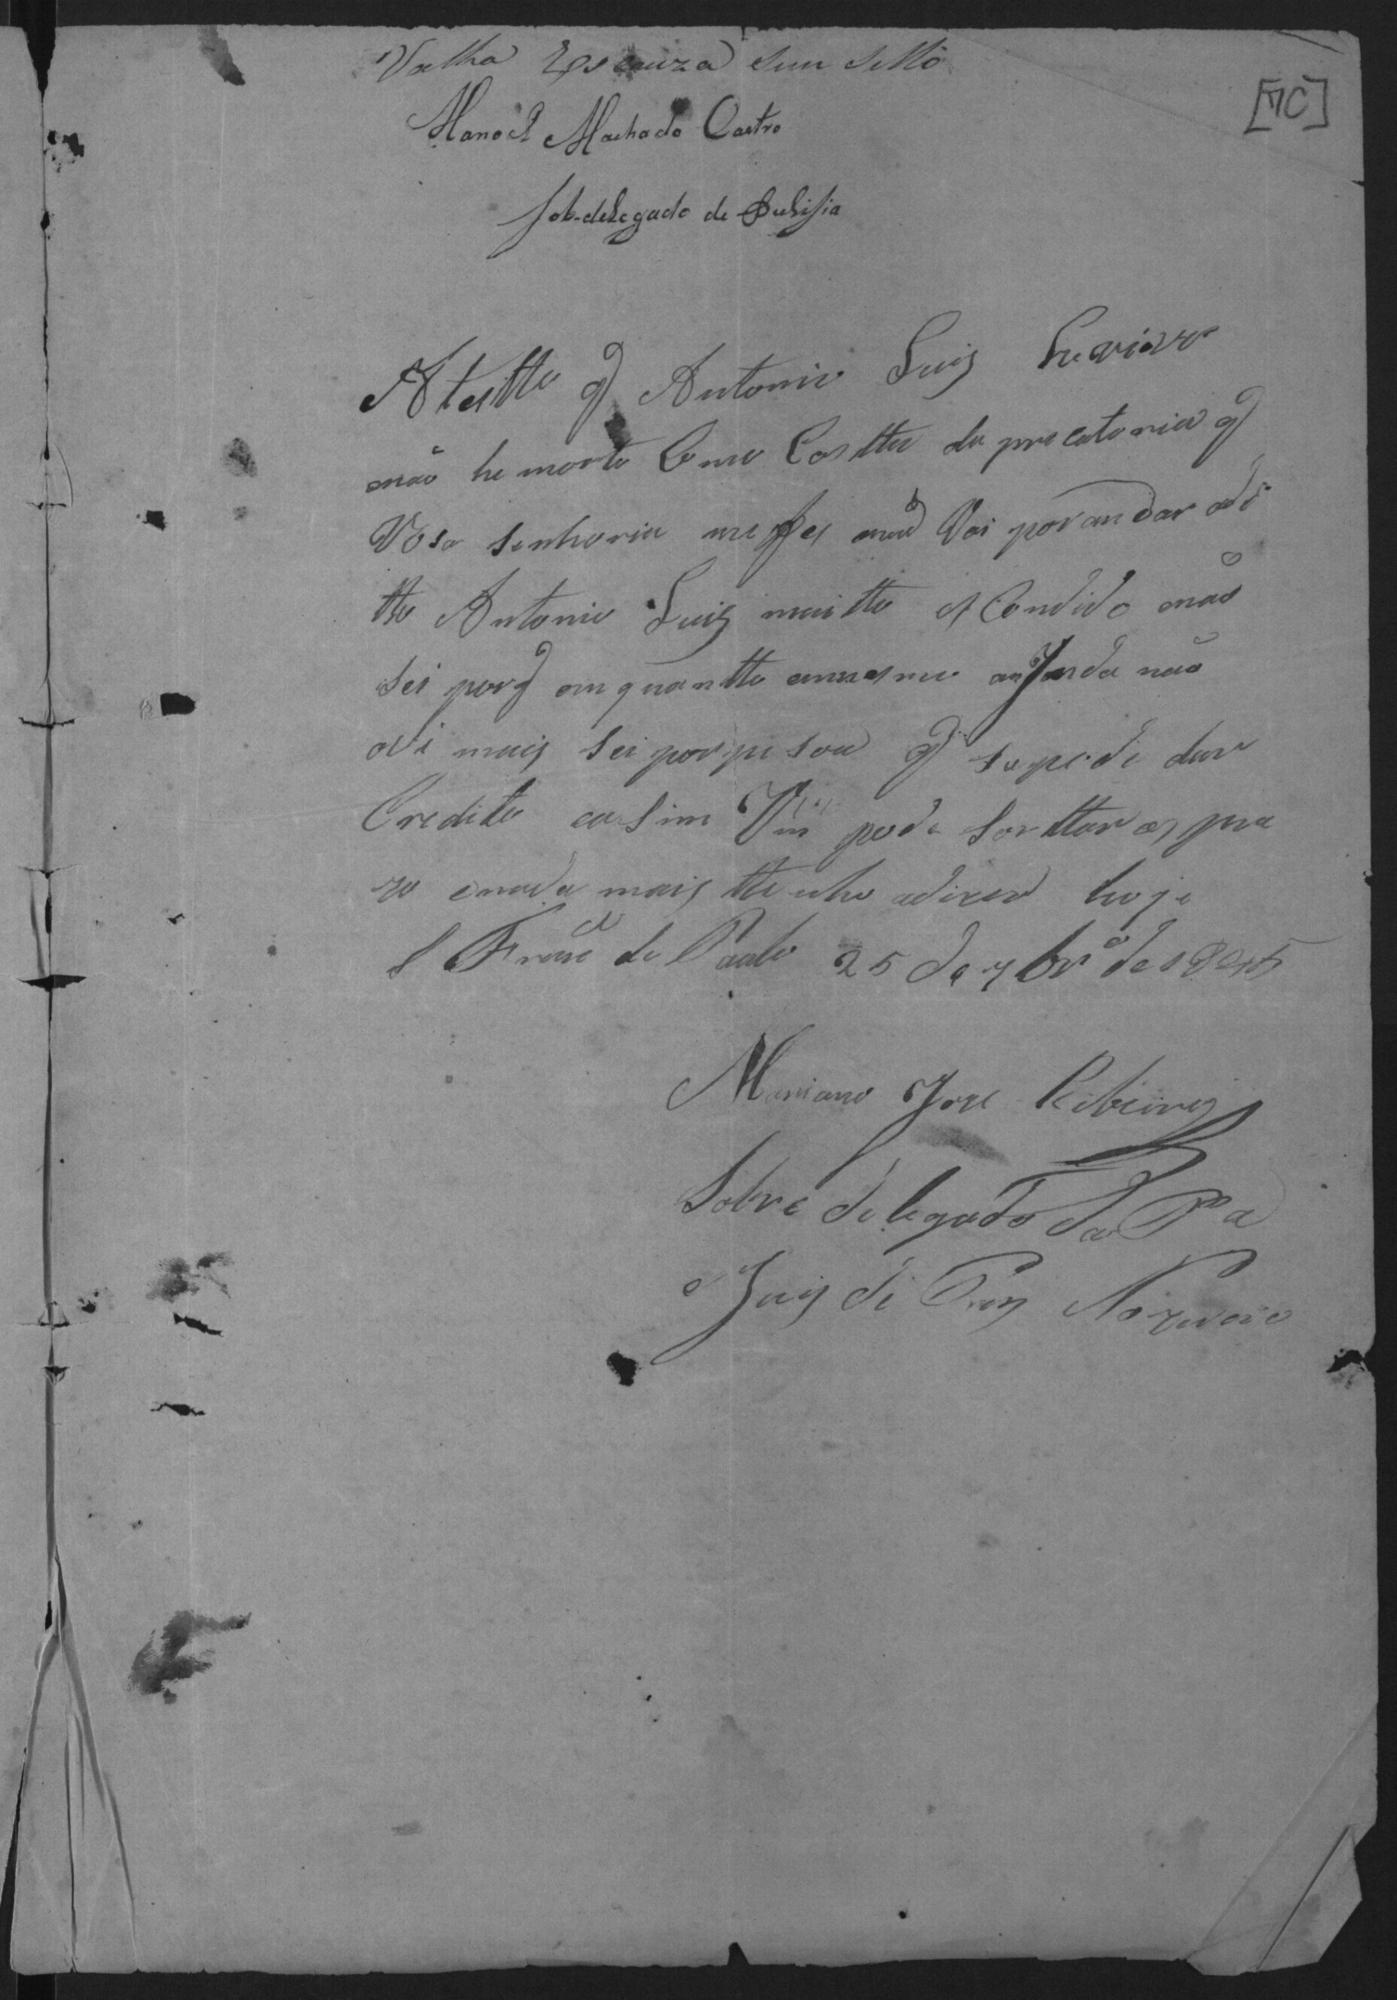 Valha Escauza sem sello
[7C]
Manoel Machado Castro
Sob-delegado de Pulisia
Atestto q Antonio Luis
não he morto Como Costta da precatoria q
Vosa senhoria me fes Vai por andar o di
tto Antonio Luis muitto esCondido não
sei porq emquantto eu mesmo ainda não
o Vi mais sei por pesoa q se pode dar
Credito e asim Vm pode sorttar
e nada mais ttenho a dizer hoje
S Franc de Paulo 25 de 7br.º de
Mariano Jose Ribeiro
Sobre delegado da
Juis de Pas